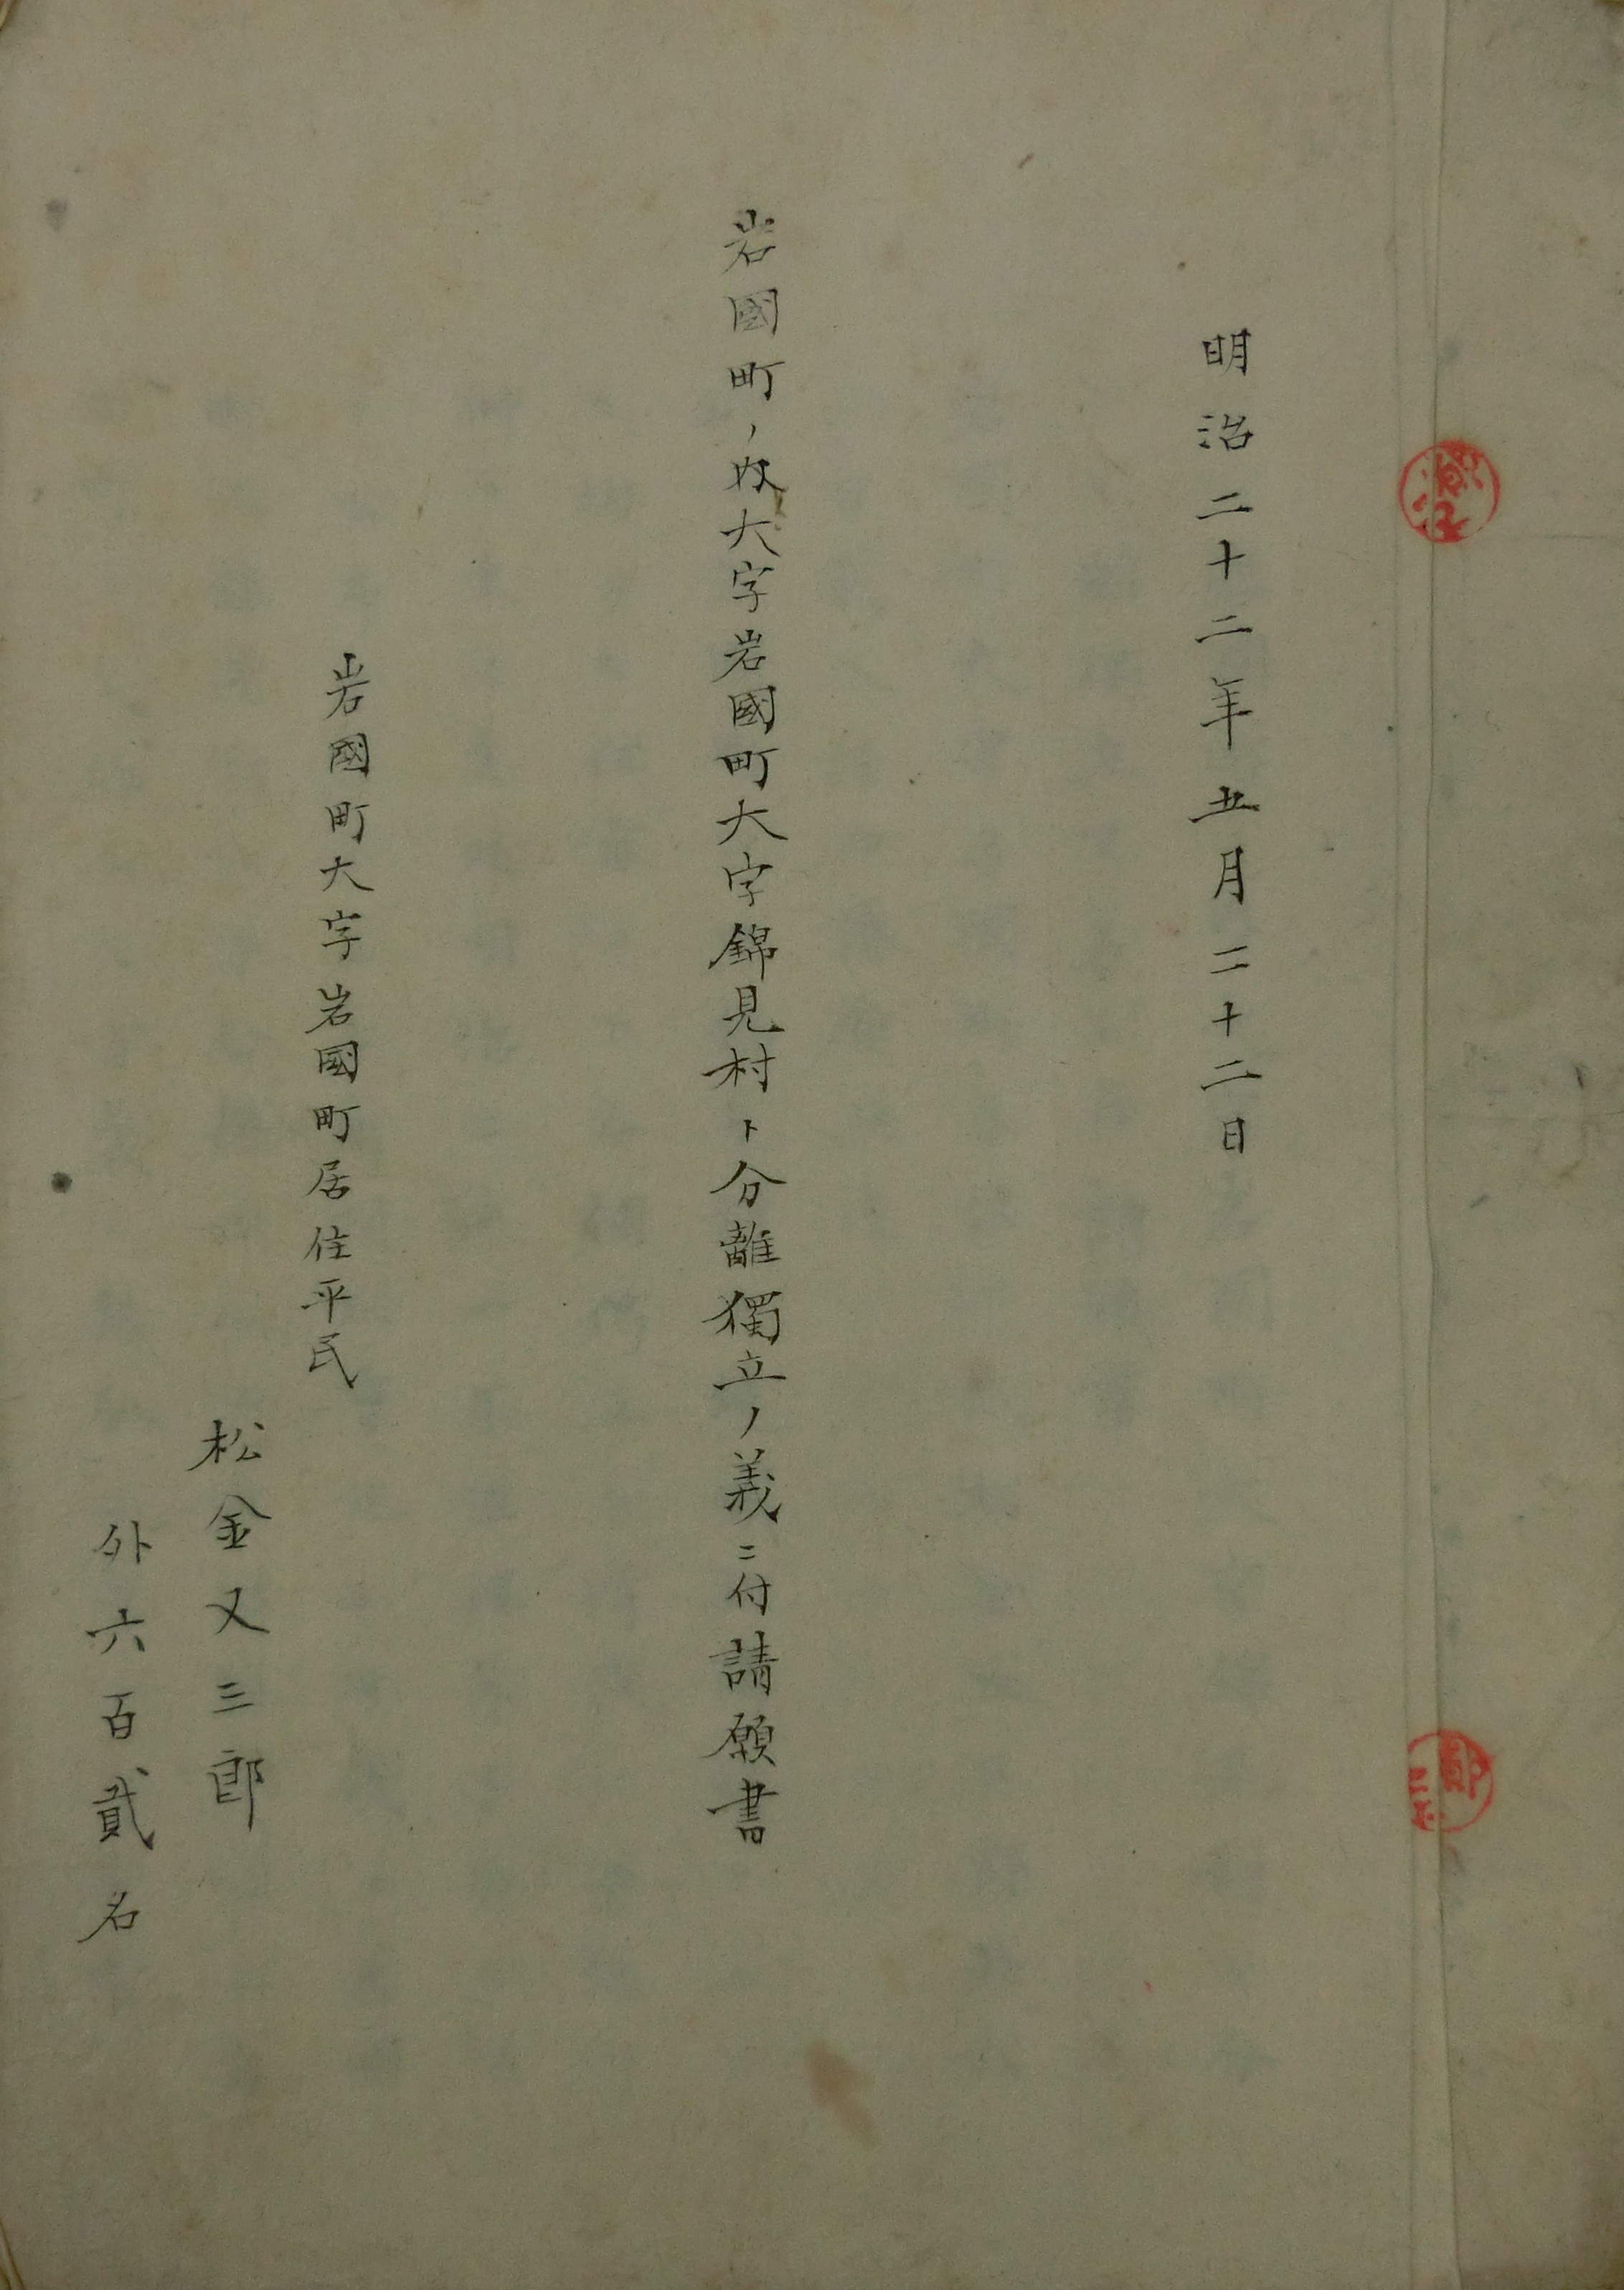 明治二十二年五月二十二日
岩國町ノ內大字岩國町大字錦見村ト分離獨立ノ義ニ付請願書
岩國町大字岩國町居住平民
松金又三郎
外六百貳名